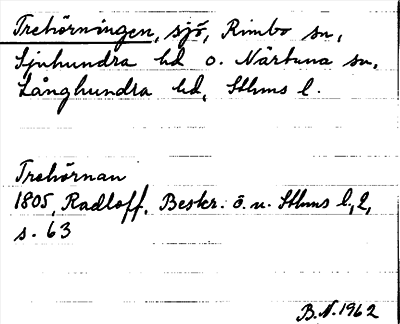 Trehörningen, sjö, Rimbo sn,
Sjuhundra hd o. Närtuna sn,
Långhundra hd, Sthms l.
Trehörnan
1805, Radloff. Beskr. ö. n. Sthms l, 2,
s. 63
B.N. 1962